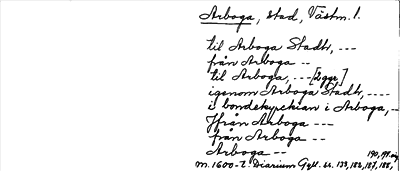 Arboga, stad, Västm. l.
til Arboga Stadh, ---
från Arboga --
til Arboga, --- [2 ggr]
igenom Arboga Stadh, ----
i bondekyrckian i Arboga, --
Ifrån Arboga ---
från Arboga --
Arboga --
190, 191
m. 1600-t. Diarium Gyll. ss. 133, 182, 187, 188,